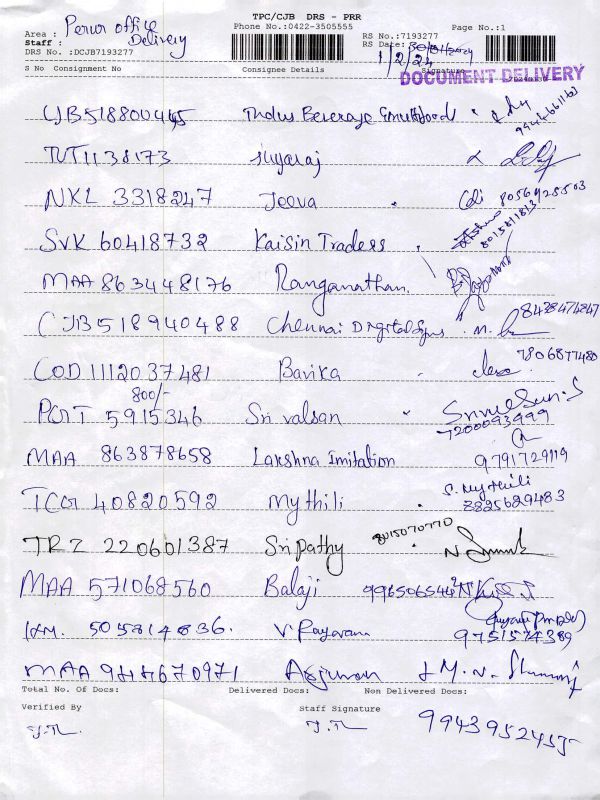 TPC/CJB DRS - PRR
Area : Perur office Delivery
Phone No.:0422-3505555
Page No.:1
Staff :
RS No.:7193277
DRS No. :DCJB7193277
RS Date:
1/2/24
S No Consignment No Consignee Details Signature
DOCUMENT DELIVERY
CJB518800445 Tholus Beverage
TUT1138173 Sugaraj
NKL 3318247 Jeeva 8056925503
SVK 60418732 Kaisin Traders 8015811813
MAA 863448176 Ranganathan.
CJB518940488 Chennai Digital Signs 8428474847
COD 1112037481 Bavika 7806877480
800/-
PCT 5915346 Sri valsan 7200093999
MAA 863878658 Lakshna Imitation 9791729119
TCG 40820592 Mythili S. Mythili 8825629483
TRZ 220601387 Sri pathy 8015070770
MAA 571068560 Balaji
505814836. V. Rayavan 9751574389
MAA 944670971 Arjunan
Total No. Of Docs: Delivered Docs: Non Delivered Docs:
Verified By Staff Signature
9943952455